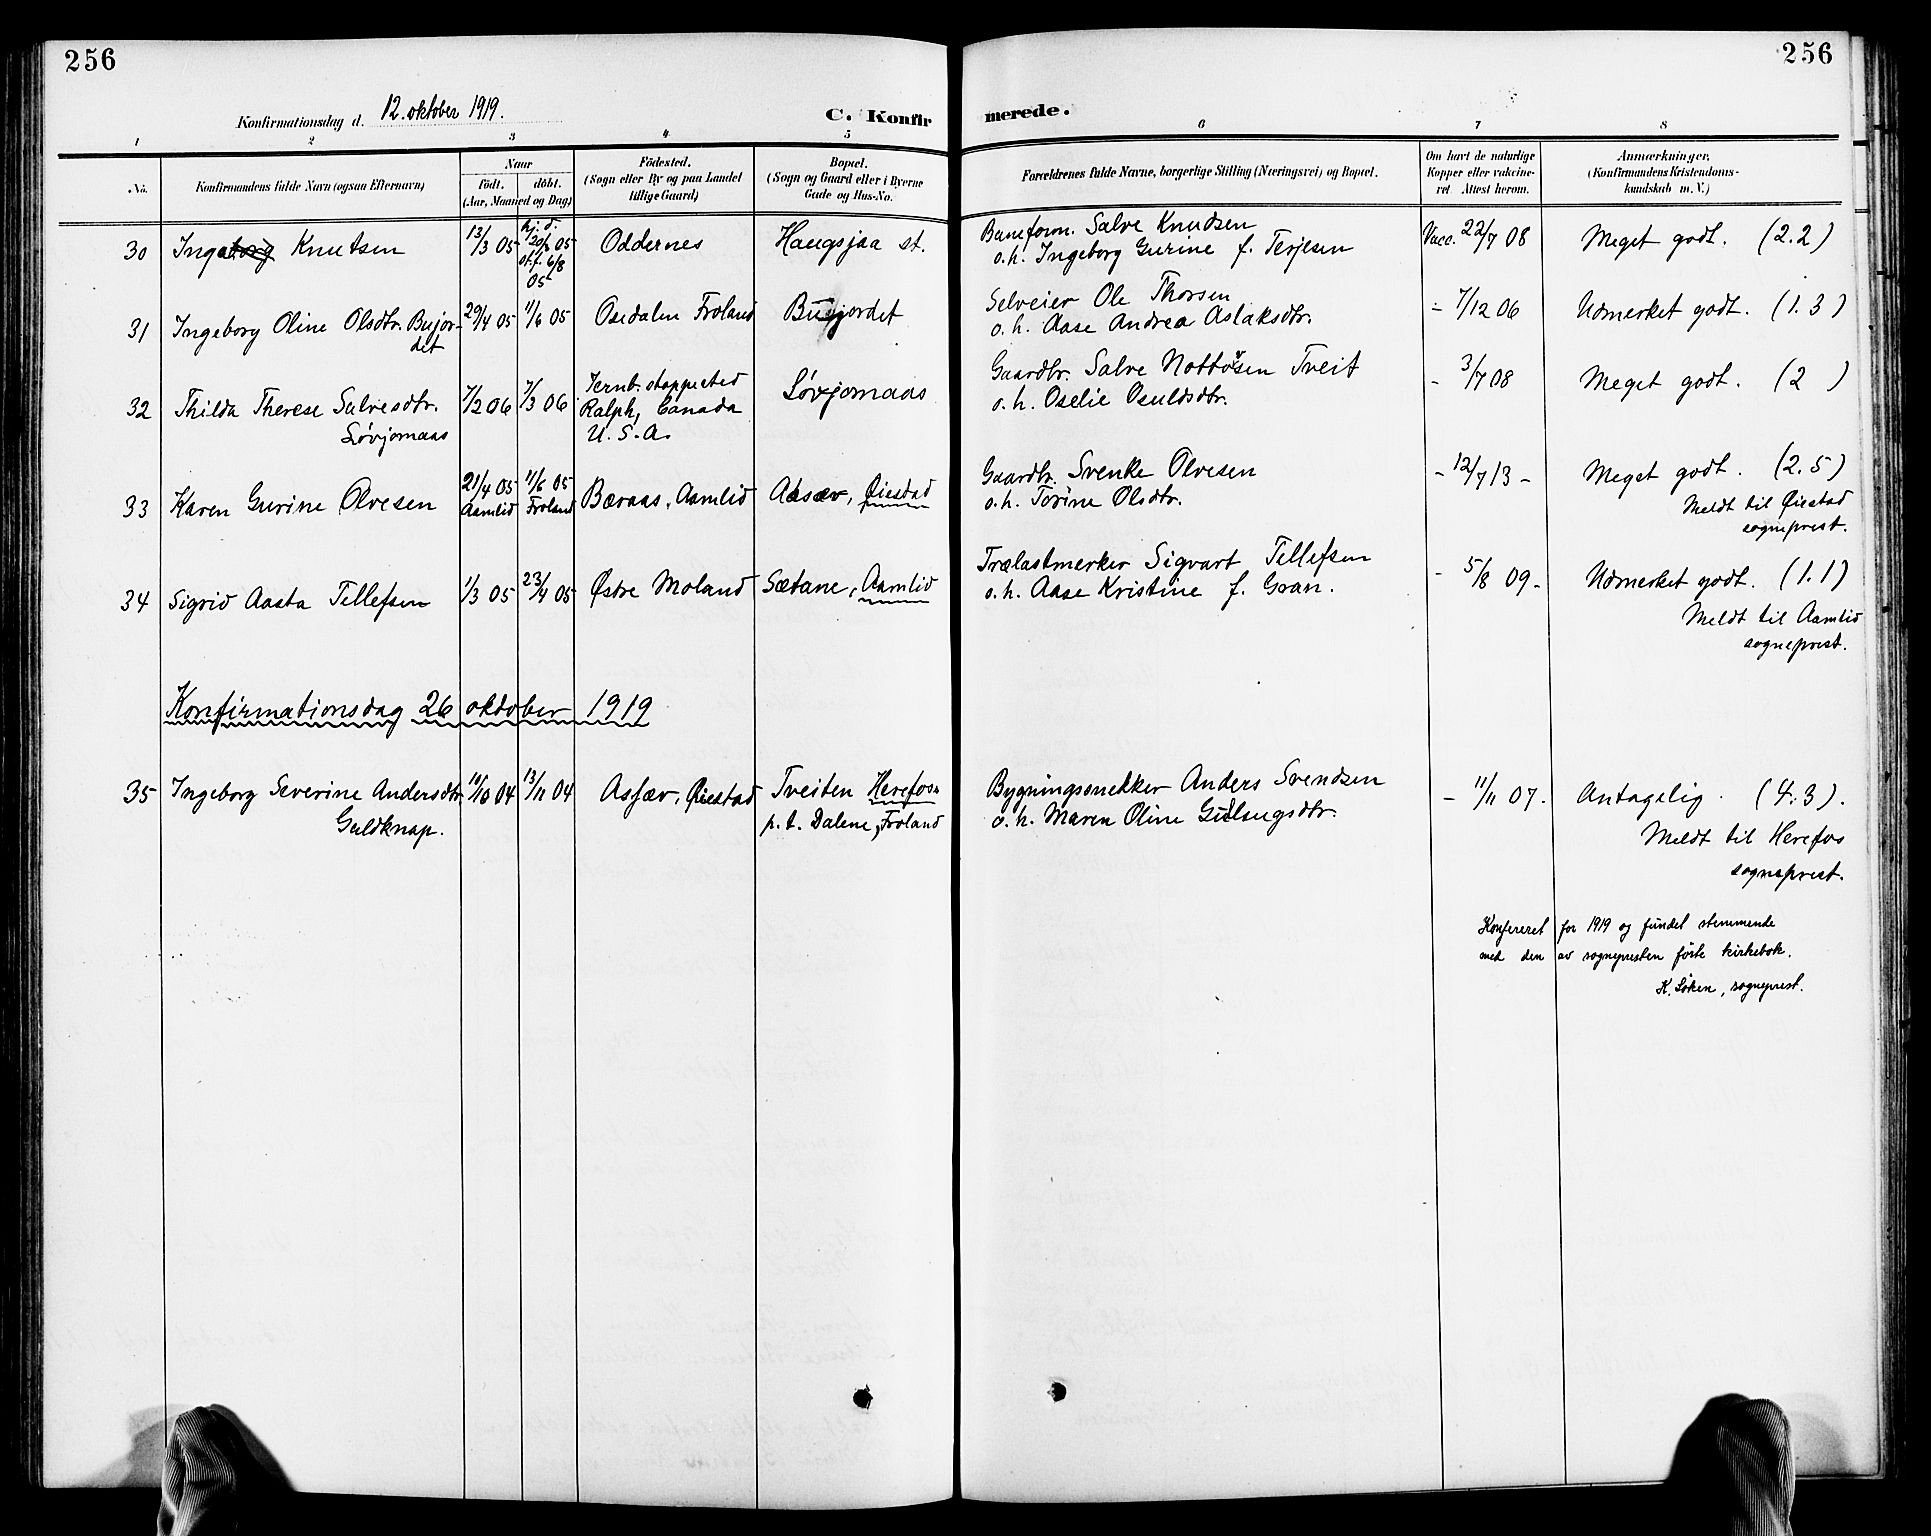 256
256
Konfirmationsdag d. 12. oktober 1919.
C. Konfirmerede.
1 2 3 4 5 6 7 8
No.
Konfirmandens fulde Navn (ogsaa Efternavn)
Naar
födt. döbt.
(Aar, Maaned og Dag)
Födested.
(Sogn eller By og paa Landet
tillige Gaard)
Bopæl.
(Sogn og Gaard eller i Byerne
Gade og Hus-No.
Forældrenes fulde Navne, borgerlige Stilling (Næringsvei) og Bopæl.
Om havt de naturlige
Kopper eller vakcine-
ret. Attest herom.
Anmærkninger.
(Konfirmandens Kristendoms-
kundskab m. V.)
30 Ingeborg Knutsen 13/3 05 hj. d. /20/4 05 Oddernes Haugsjaa st. Baneform. Salve Knudsen Vacc. 22/7 08 Meget godt. (2.2)
st.f. 6/8 o.h. Ingeborg Gurine f. Terjesen
05
31 Ingeborg Oline Olsdtr. Bujor- 29/4 05 11/6 05 Osedalen Froland Buejordet Selveier Ole Thorsen - 7/12 06 Udmerket godt. (1.3)
det o.h. Aase Andrea Aslaksdtr.
32 Thilda Therese Salvesdtr. 7/2 06 7/3 06 Jernb. stoppested Løvjomaas Gaardbr. Salve Nottosen Tveit - 3/7 08 Meget godt. (2 )
Ralph, Canada o.h. Oselie Osuldsdtr.
Løvjomaas U.S.A.
33 Karen Gurine Olvesen 21/4 05 11/6 05 Bæraas, Aamlid Aasæv, Øiestad Gaardbr. Svenke Olvesen - 12/7 13 - Meget godt. (2.5)
Aamlid Froland o.h. Torine Olsdtr. Meldt til Øiestad
sogneprest.
34 Sigrid Aasta Tellefsen 1/3 05 23/4 05 Østre Moland Sætane, Aamlid Trælastmerker Sigvart Tellefsen - 5/8 09 - Udmerket godt. (1.1)
o.h. Aase Kristine f. Gran. Meldt til Aamlid
sogneprest.
Konfirmationsdag 26 oktober 1919
35 Ingeborg Severine Andersdtr. 10/10 04 13/11 04 Asfæv, Øiestad Tveiten Herefoss Bygningssnekker Anders Svendsen - 11/11 07. Antagelig. (4.3).
Guldknap. p.t. Dalene, Froland o.h. Maren Oline Gulaugsdtr. Meldt til Herefos
sogneprest.
Konfereret for 1919 og fundet stemmende
med den av sognepresten førte kirkebok.
K. Løken, sogneprest.